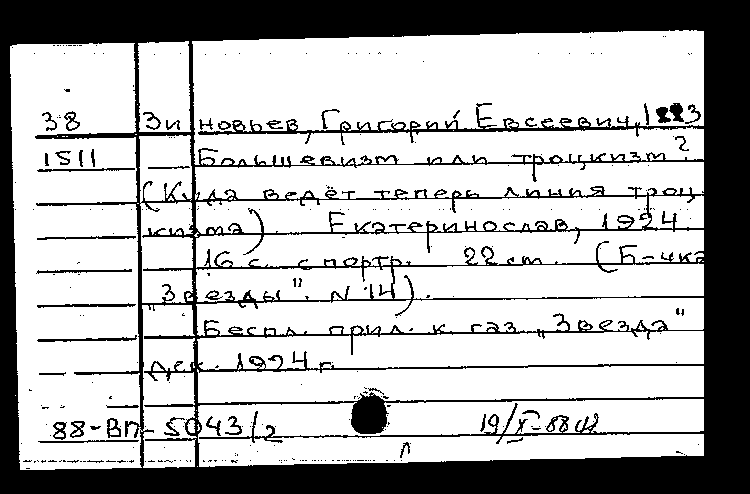 38 Зиновьев, Григорий Евсеевич, 1883
1511 Большевизм или троцкизм?
(Куда ведёт теперь линия троц-
кизма). Екатеринослав, 1924.
16 с. с портр. 22 cm. (Б-чка
„Звезды". N 14).
Беспл. прил. к газ „Звезда"
дек. 1924 г.
88-ВП-5043/2 19/X-88